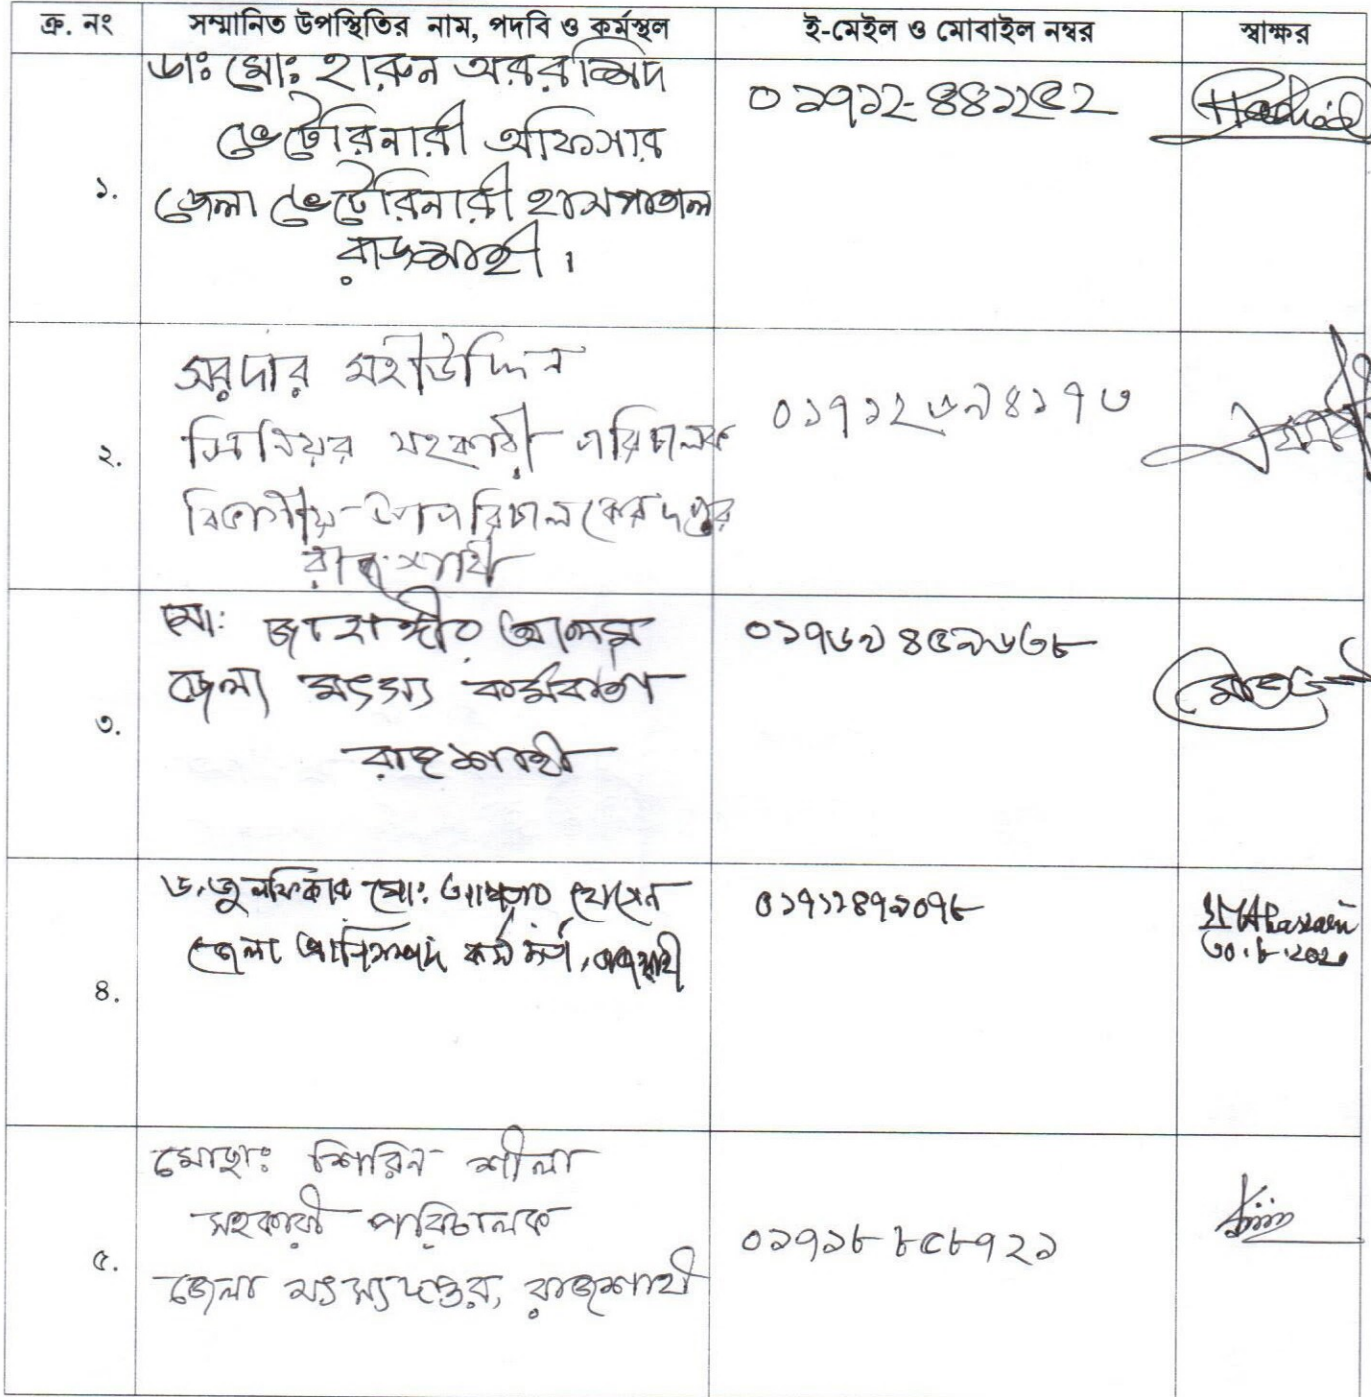 ক্র. নং সম্মানিত উপস্থিতির নাম, পদবি ও কর্মস্থল ই-মেইল ও মোবাইল নম্বর স্বাক্ষর
১.
ডাঃ মোঃ হারুন অর রশিদ
ভেটেরিনারী অফিসার
জেলা ভেটেরিনারী হাসপাতাল
রাজশাহী।
০১৭১২-৪৪১১৫২
২.
সরদার মহীউদ্দিন
সিনিয়র সহকারী পরিচালক
বিভাগীয় উপপরিচালকের দপ্তর
রাজশাহী
০১৭১২৬৯৪১৭৩
৩.
মো: জাহাঙ্গীর আলম
জেলা মৎস্য কর্মকর্তা
রাজশাহী
০১৭৬৯৪৫৯৬৩৮
৪.
ড. জুলফিকার মো: আখতার হোসেন
জেলা প্রাণিসম্পদ কর্মকর্তা, রাজশাহী
০১৭১২৪৭৯০৭৮
৩০.৮.২০২০
৫.
মোছাঃ শিরিন শীলা
সহকারী পরিচালক
জেলা মৎস্য দপ্তর, রাজশাহী
০১৭১৮৮৫৮৭২১